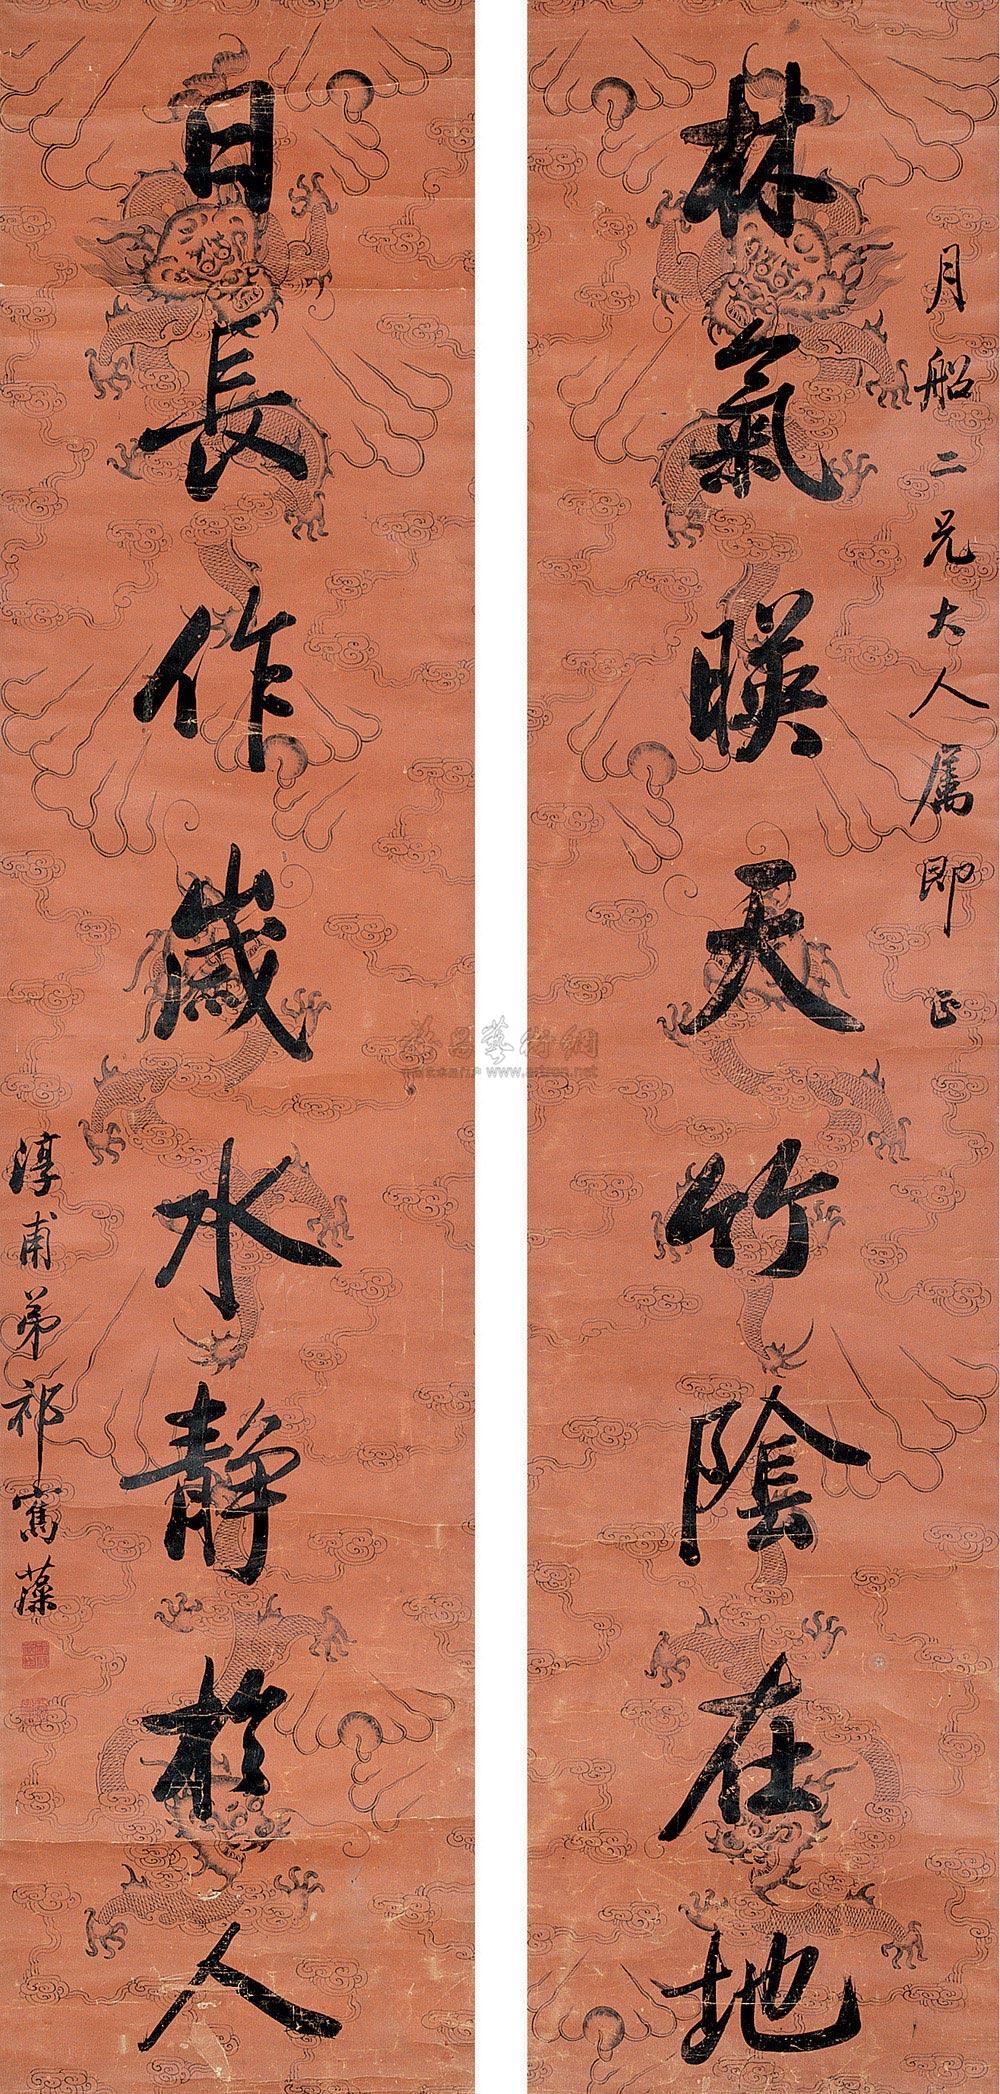 月船二兄大人属即正
林氣暎天竹陰在地
日長作歲水靜於人
淳甫弟祁寯藻
www.artron.net